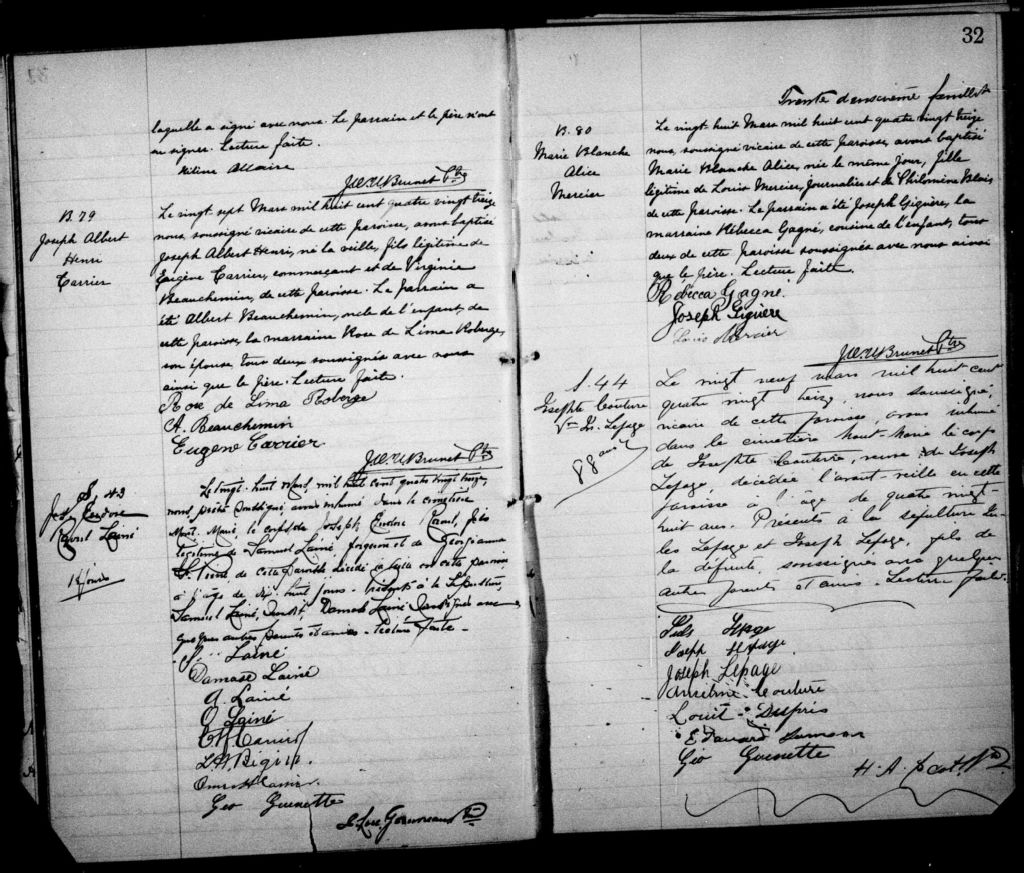 laquelle a signé avec nous. Le parrain et le père n'ont
su signer. Lecture faite.
Allaire
J.W.U Brunet Ptre
B. 79
Joseph Albert
Henri
Carrier
Le vingt sept Mars mil huit cent quatre vingt treize
nous, soussigné vicaire de cette paroisse, avons baptisé
Joseph Albert Henri, né la veille, fils légitime de
Eugène Carrier, commerçant et de Virginie
Beauchemin, de cette paroisse. Le parrain a
été Albert Beauchemin, oncle de l'enfant, de
cette paroisse, la marraine Rose de Lima Roberge,
son épouse, tous deux soussignés avec nous
ainsi que le père. Lecture faite.
Rose de Lima Roberge
A. Beauchemin
Eugène Carrier
J.W.U Brunet Ptre
S. 43
Jos. Eudore
Raoul Lainé
18 jours
Le vingt-huit Mars, mil huit cent quatre vingt treize,
nous, prêtre soussigné, avons inhumé dans le cimetière
Mont-Marie le corps de Joseph Eudore Raoul, fils
légitime de Samuel Lainé, forgeron et de Georgianna
St. Pierre de cette paroisse décédé la veille en cette paroisse
à l'âge de dix-huit jours. Présents à la sépulture,
Samuel Lainé, Damase Lainé soussignés avec
quelques autres parents et amis. Lecture faite.
S. Lainé
Damase Lainé
A. Lainé
O. Lainé
Geo Guenette
32
Trente deuxième feuillet
B. 80
Marie Blanche
Alice
Mercier
Le vingt huit Mars mil huit cent quatre vingt treize
nous, soussigné vicaire de cette paroisse, avons baptisé
Marie Blanche Alice, née le même jour, fille
légitime de Louis Mercier, journalier et de Philomine Blais
de cette paroisse. Le parrain a été Joseph Giguère, la
marraine Rébecca Gagné, cousine de l'enfant, tous
deux de cette paroisse soussignés avec nous ainsi
que le père. Lecture faite.
Rébecca Gagné.
Joseph Giguère
Louis Mercier
J.W.U Brunet Ptre
S. 44
Josephte Couture
Vve Jos. Lepage
88 ans
Le vingt neuf mars mil huit cent
quatre vingt treize, nous soussigné,
vicaire de cette paroisse, avons inhumé
dans le cimetière Mont-Marie le corps
de Josephte Couture, veuve de Joseph
Lepage décédée l'avant-veille en cette
paroisse à l'âge de quatre vingt-
huit ans. Présents à la sépulture Ju-
les Lepage et Joseph Lepage, fils de
la défunte, soussignés avec quelques
autres parents et amis. Lecture faite.
Jules Lepage
Joseph Lepage
Joseph Lepage
Anselme Couture
Louis Dupris
Edouard
Geo Guenette